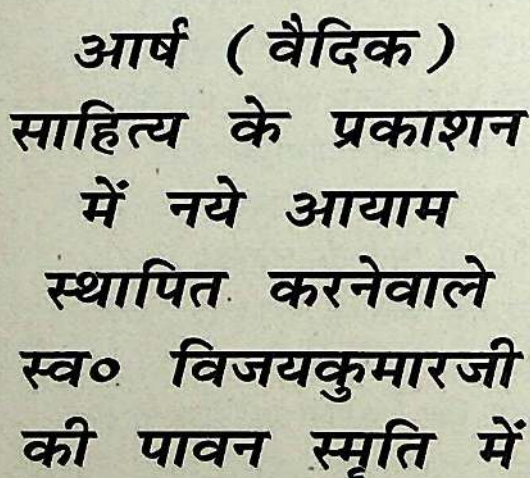 आर्ष ( वैदिक )
साहित्य के प्रकाशन
में नये आयाम
स्थापित करनेवाले
स्व० विजयकुमारजी
की पावन स्मृति में